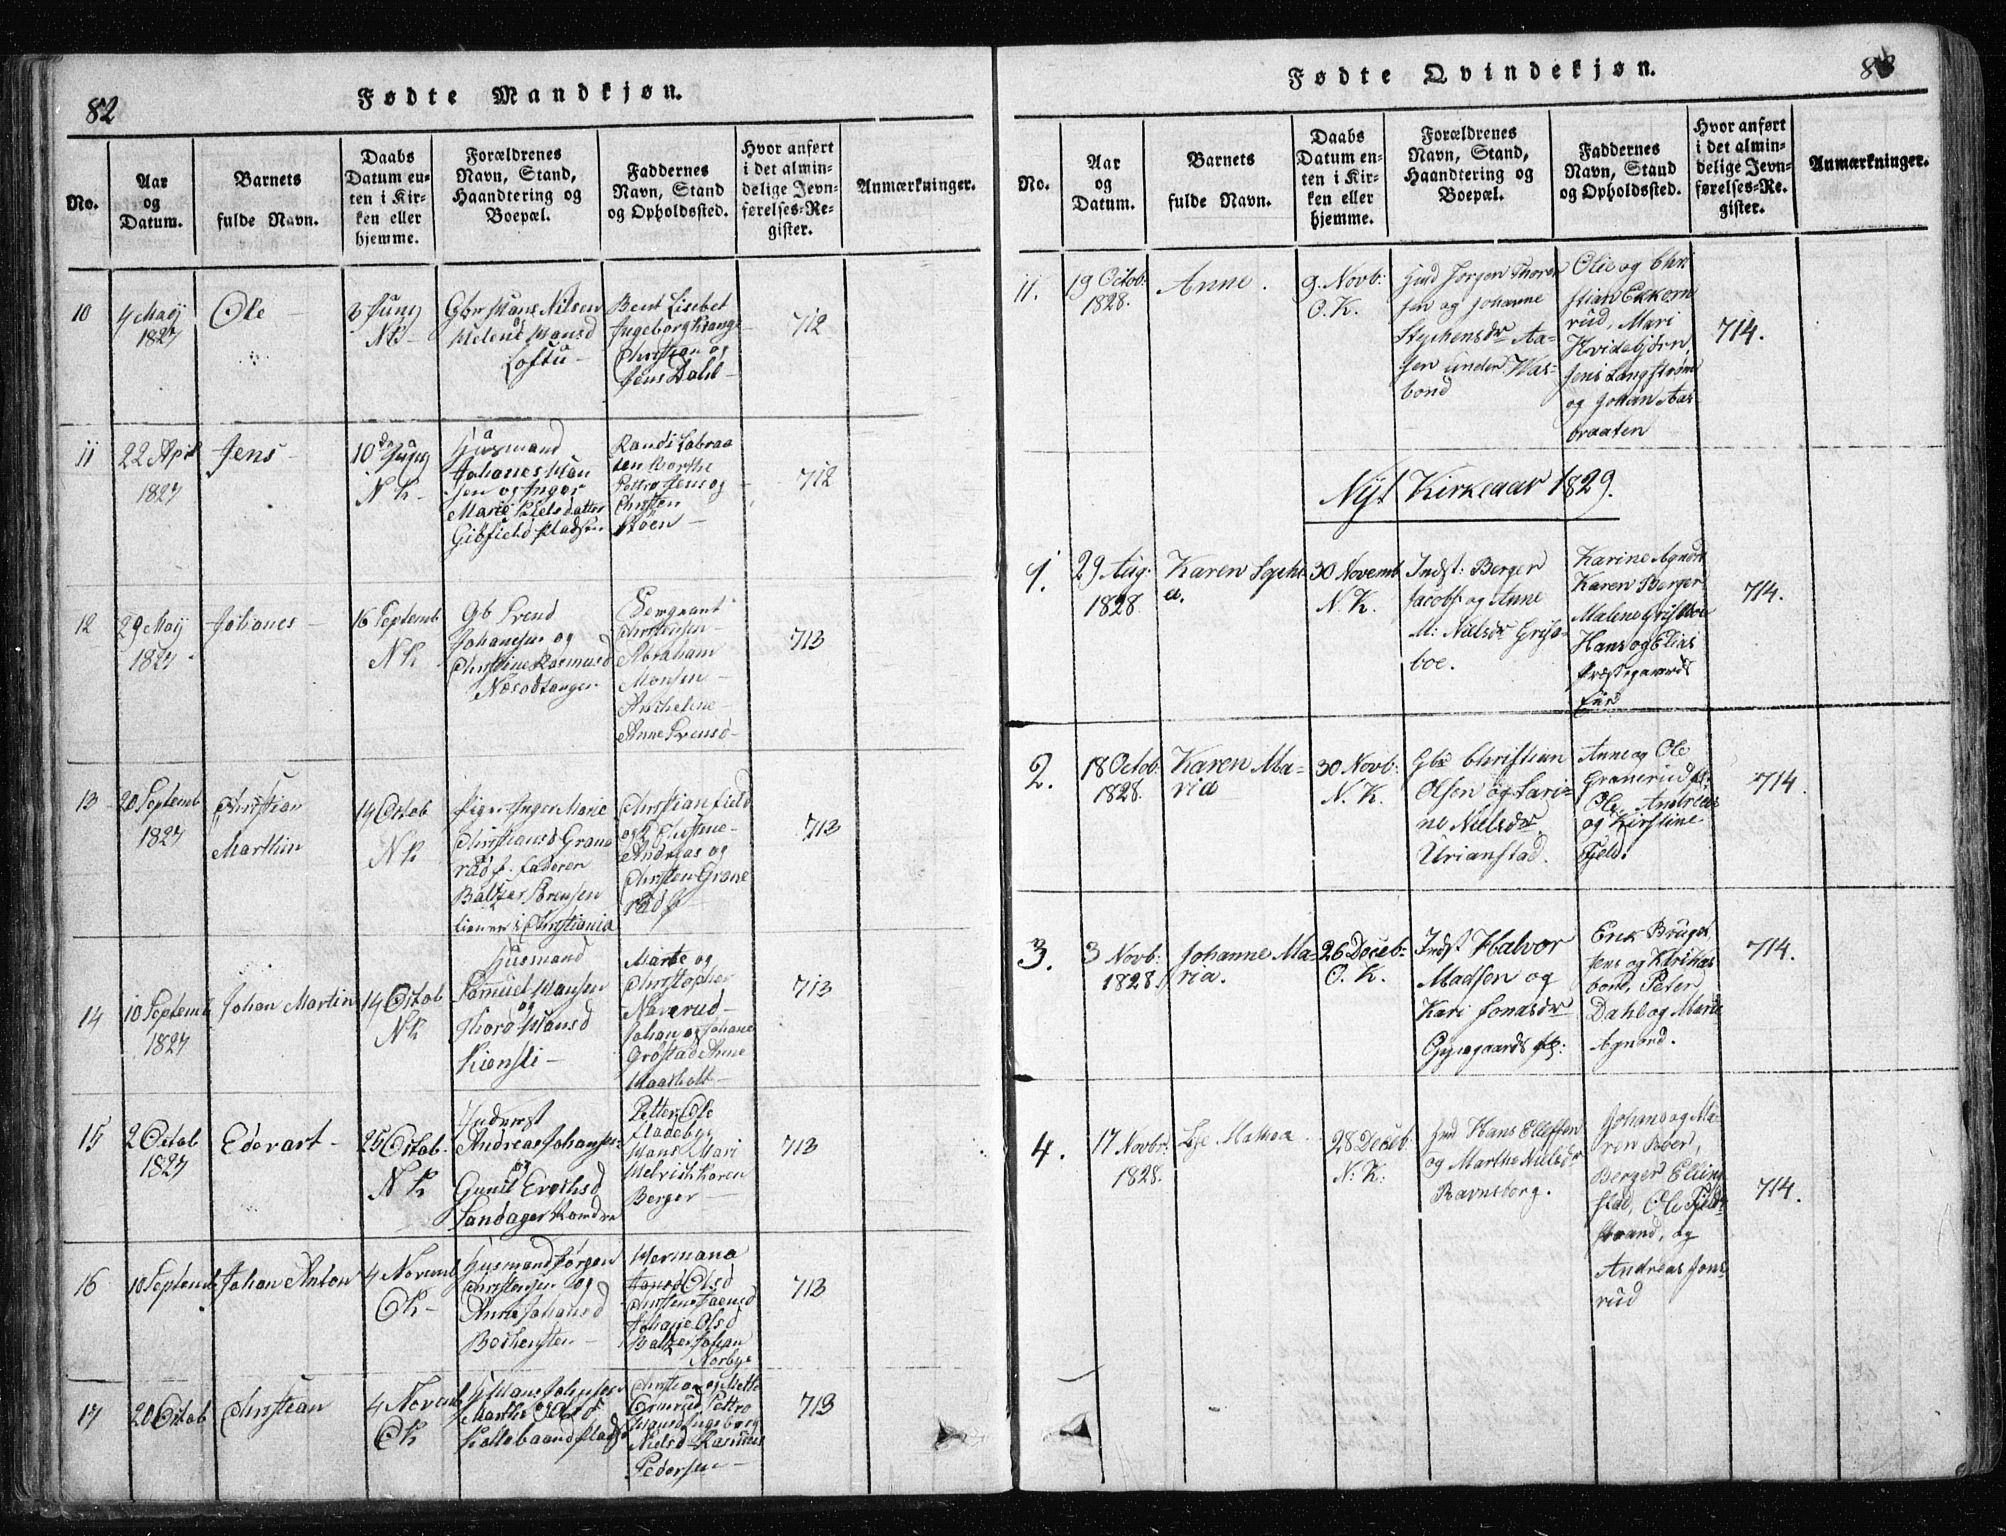 82
Fødte Mandkjøn.
No.
Aar
og
Datum.
Barnets
fulde Navn.
Daabs
Datum en-
ten i Kir-
ken eller
hjemme.
Forældrenes
Navn, Stand,
Haandtering og
Boepæl.
Faddernes
Navn, Stand
og Opholdssted.
Hvor anført
i det almin-
delige Jevn-
førelses-Re-
gister.
Anmærkninger.
10
4 Maij
1827
Ole
3 Juny
NK
Gbr Hans Nilsen
Helene Hansd
Loftu
Bent Lisebet
Ingeborg Krange
Christian og
Jens Dahl
712
11
22 Apr
1827
Jens
10 Juny
NK
Huusmand
Johanes Han
sen og Inger
Marie Nielsdatter
Gibfield Pladsen
Randi Labraa
ten Marthe
Jens og
Christen
Støen
712
12
29 Maij
1827
Johanes
16 Septemb
NK
Gb Svend
Johanesen og
Christine Rasmusd
Nesodtangen
Sergeant
Christensen
Abraham
Monsen
Anne Svensd
713
13
20 Septemb
1827
Christian
Marthin
14 Octob
NK
Pige Inger Marie
Christiansd Grane
rud f. Faderen
Baltzer Sørensen
tiener i Christiania
Christian Field
og Christine
Andreas og
Christen Grane
rud
713
14
10 Septemb
1827
Johan Martin
14 Octob
NK
Husmand
Samuel Hansen
og
Thore Hansd
Marte og
Christopher
Naverud
Johan og Johane
Grøstad Anne
713
15
2 Octob
1827
Edevart
25 Octob
NK
Inderst
Andreas Johansen
og
Gunil Erichsd
Sandager
Petter Ole
Fladeby
Hans Mari
Karen
Berger
713
16
10 Septemb
Johan Anton
4 Novemb
OK
Husmand Jørgen
Christensen og
Anne Johansd
Hermana
Olsd
Johane Olsd
Baltzer Johan
Norbye
713
17
20 Octob
Christian
4 Novemb
OK
Hans Johansen
Marthe Olsd
Christian og Mette
Ingeborg
Nielsd Rasmus
Pedersen
713
Fødte Qvindekjøn.
83
No.
Aar
og
Datum.
Barnets
fulde Navn.
Daabs
Datum en-
ten i Kir-
ken eller
hjemme.
Forældrenes
Navn, Stand,
Haandtering og
Boepæl.
Faddernes
Navn, Stand
og Opholdssted.
Hvor anført
i det almin-
delige Jevn-
førelses-Re-
gister.
Anmærkninger.
11.
19 Octob:
1828.
Anne.
9. Novb:
O. K.
Jørgen Thoren
sen og Johanne
Stephensdr Aa-
sen under Was-
bond
Ole og Chri
stian Ekkorn
rud, Mari
Kvidebjørn,
Jens Langstrøm
og Johan Aas
braaten
714.
Nyt Kirkeaar 1829.
1.
29 Aug:
1828.
Karen Sophi
a.
30 Novemb
N. K.
Indst: Berger
Jacobs: og Anne
M: Nielsdr Griis-
boe.
Karine Agnord
Karen Berger
Malene Grisboe
Hans og Elias
Præstegaards
Eier
714.
2.
18 Octob:
1828.
Karen Ma-
ria
30 Novb:
N. K.
Gbr Christian
Olsen og Kari-
ne Nielsdr
Urianstad.
Anne og Ole
Granerud
Ole, Andreas
og Kirstine
Fjeld.
714.
3.
3 Novb:
1828.
Johanne Ma-
ria.
26 Deceb:
O. K.
Indst Halvor
Madsen og
Kari Jonasdr
Erik Bruget,
Jens og
Peter
Dahl og Marie
Agnord.
714.
4.
17 Novbr:
1828.
28 Deceb:
N: K:
Hans Elleffsen
og Marthe Nielsdr
Ravnsborg.
Johans og Ma-
ren Boer,
Berger Elling
stad, Ole Fjeld
strand, og
Andreas Jons
rud
714.